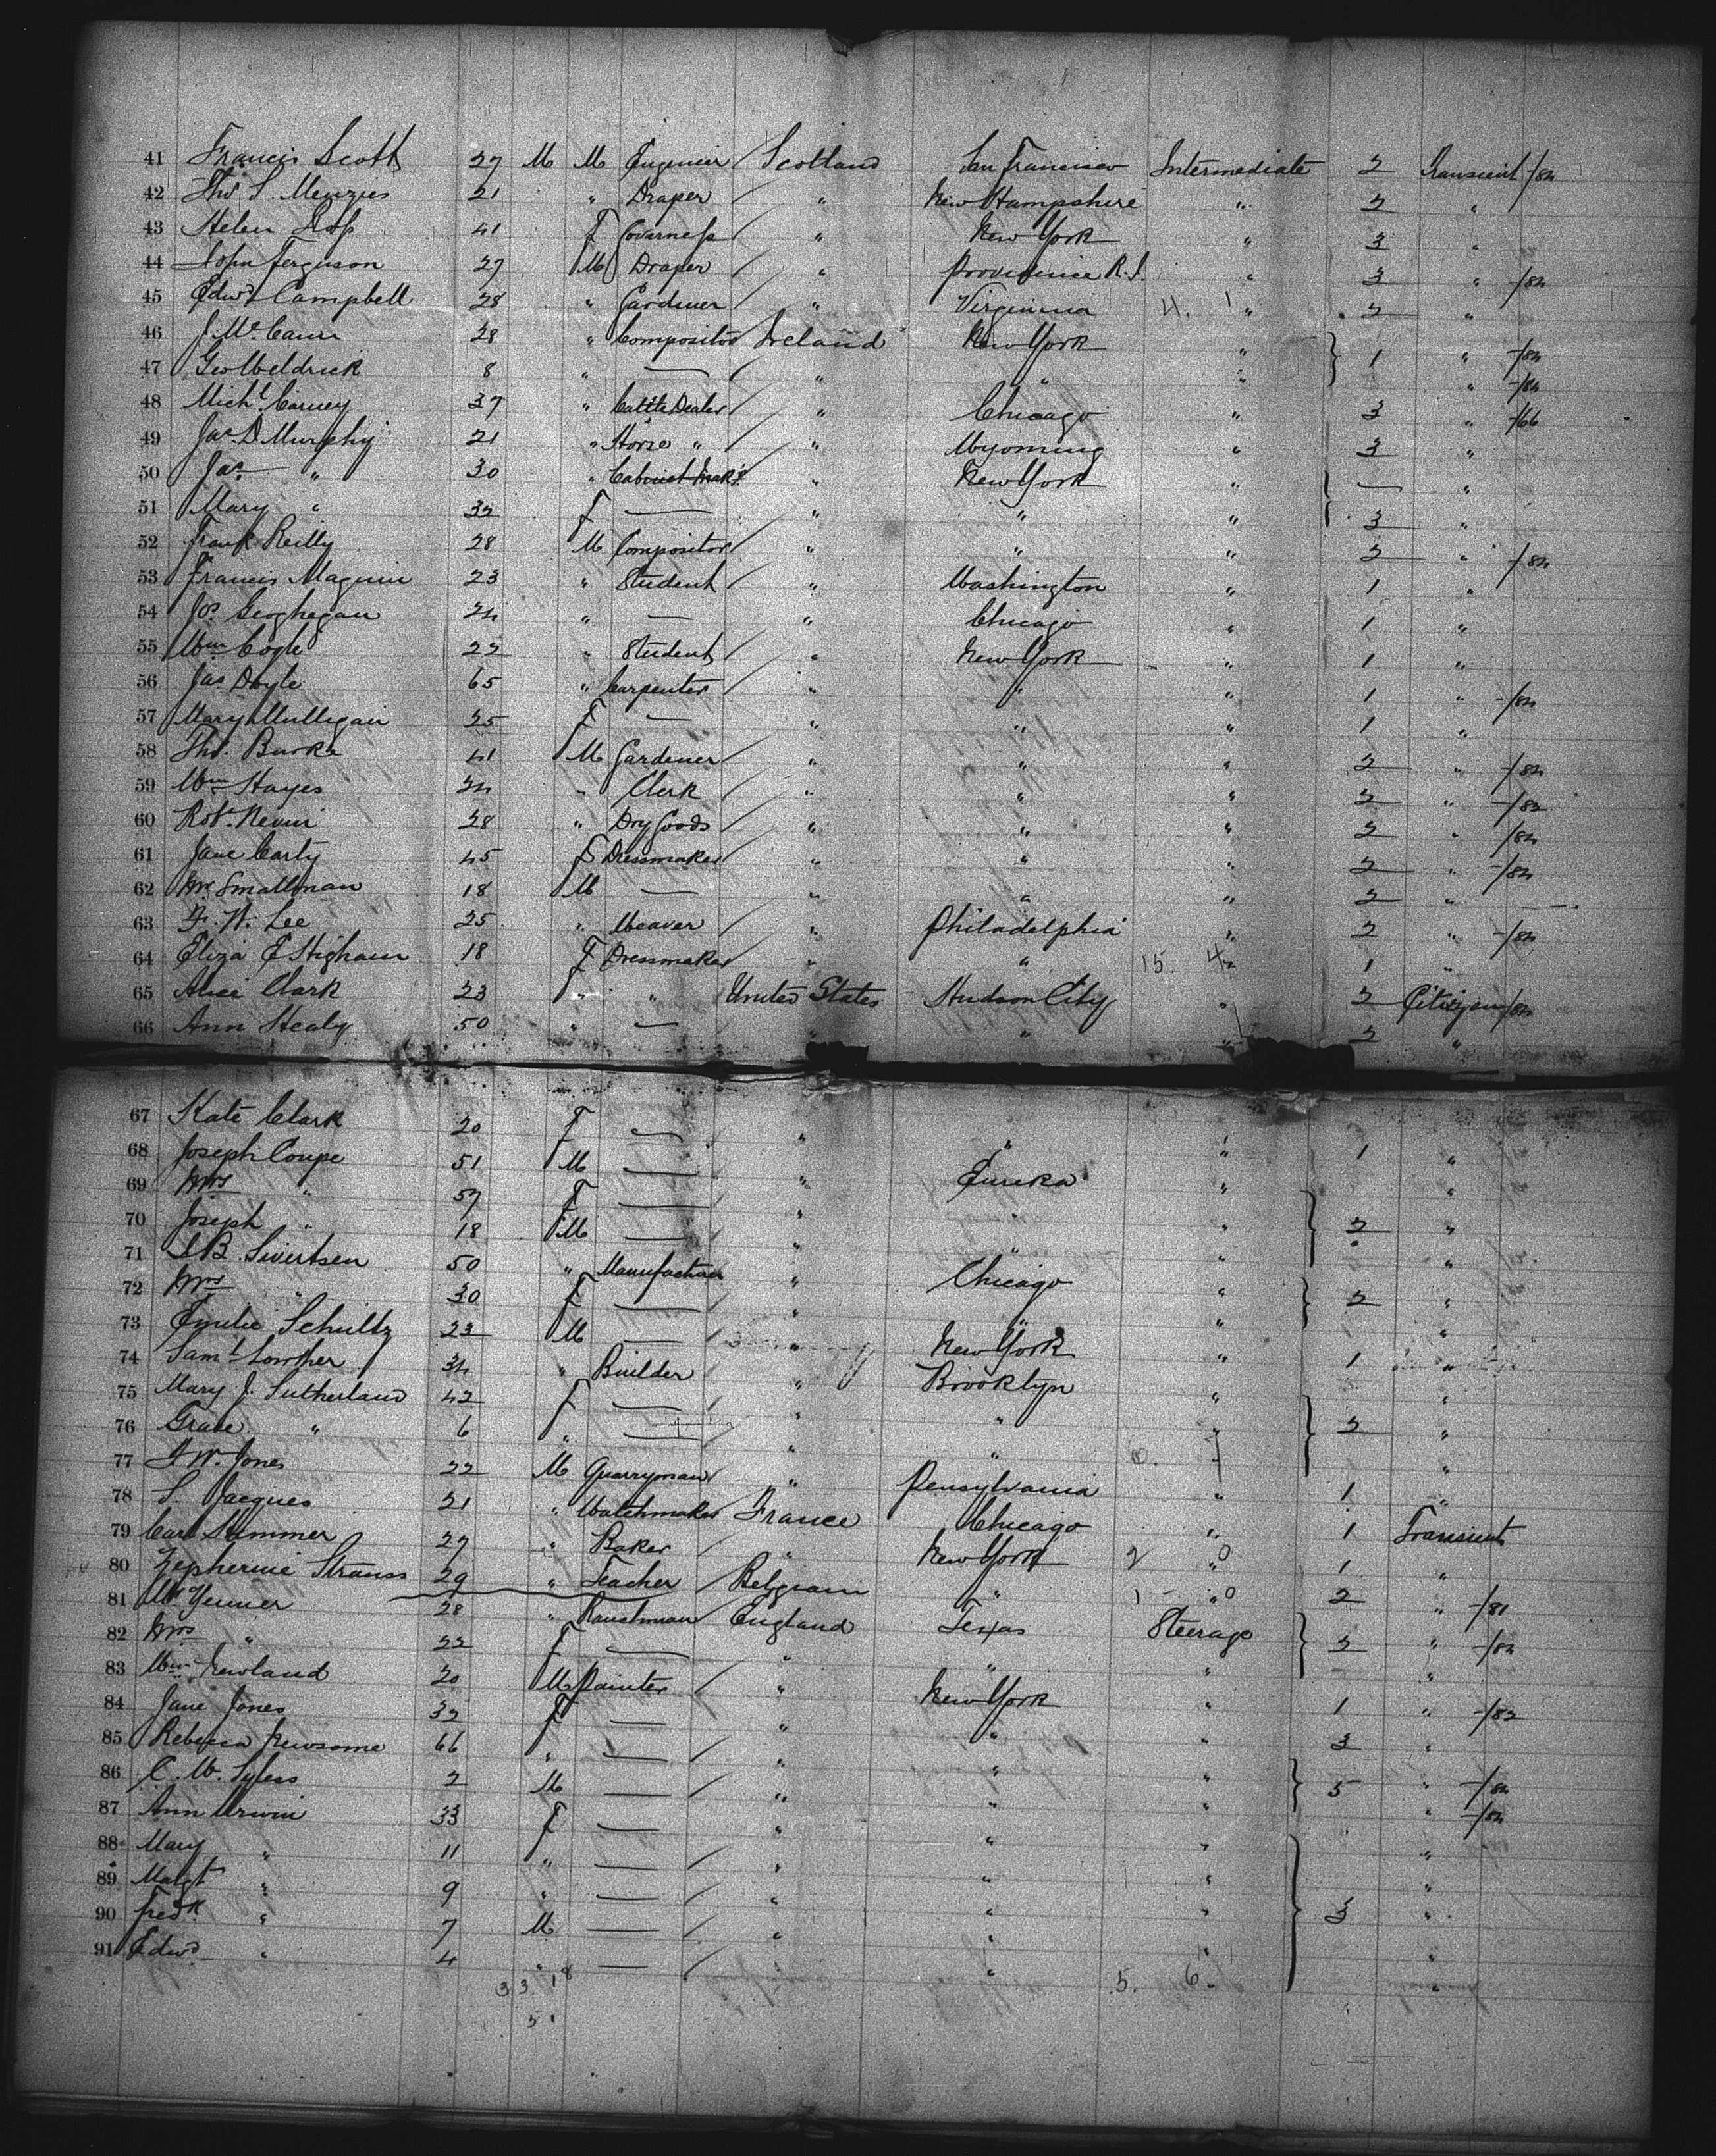 41 Francis Scott 27 M M Engineer / Scotland San Francisco Intermediate 2 Transient /82
42 Thos S. Menzies 21 " Draper / " New Hampshire " 2 "
43 Helen 41 F Governess / " New York " 3 "
44 John Ferguson 27 M Draper / " Providence R.I. " 3 " /82
45 Edwd Campbell 28 " Gardener / " Virginia 4. 1 " 2 "
46 J. McCann 28 " Compositor Ireland New York " 1 " /82
47 Geo Weldrick 8 " — " " " " /82
48 Michl Carney 37 " Cattle Dealer / " Chicago " 3 " /66
49 Jas. D. Murphy 21 " Horse " / " Wyoming " 3 "
50 Jas " 30 " Cabinet Makr / " New York " — "
51 Mary " 32 F — " " " 3 "
52 Frank Reilly 28 M Compositor / " " " 2 " /82
53 Francis Maguire 23 " Student / " Washington " 1 "
54 Jos. Geoghegan 24 " — " Chicago " 1 "
55 Wm Cogle 22 " Student / " New York " 1 "
56 Jas Doyle 65 " Carpenter / " " " 1 " /82
57 Mary Mulligan 25 F — " " " 1 "
58 Thos. Burke 41 M Gardener / " " " 2 " /82
59 Wm Hayes 24 " Clerk / " " " 2 " /82
60 Robt. Nevin 28 " Dry Goods / " " " 2 " /82
61 Jane Carty 45 F Dressmaker / " " " 2 " /82
62 Mr Smallman 18 M — " " " 2 "
63 F. W. Lee 25 " Weaver / " Philadelphia " 2 " /82
64 Eliza E Higham 18 F Dressmaker " " 15. 4 1 "
65 Alice Clark 23 " " United States Hudson City " 2 Citizen /82
66 Ann Healy 50 " — " " " 2 "
67 Kate Clark 20 F — " " " 1 "
68 Joseph Coupe 51 M — " Eureka " "
69 Mrs " 57 F — " " " 2 "
70 Joseph " 18 M — " " " "
71 Sivertsen 50 " Manufacturer " Chicago " 2 "
72 Mrs " 30 F — " " " "
73 Emilie Schultz 23 M — " New York " 1 "
74 Saml Lowther 34 " Builder " Brooklyn " "
75 Mary J. Sutherland 42 F — " " " 2 "
76 Grace " 6 " — " " "
77 Jones 22 M Quarryman / " Pensylvania " 1 "
78 S. Jacques 21 " Watchmaker France Chicago " 1 Transient
79 Carl Stimmer 27 " Baker / " New York 2 " 0 1 "
80 Zepherine Strauss 29 " Teacher / Belgium " 1 " 0 2 " /81
81 W. Yenner 28 " Ranchman / England Texas Steerage 2 " /82
82 Mrs " 22 F — " " " "
83 Wm Newland 20 M Painter / " New York " 1 " /82
84 Jane Jones 32 F — " " " 3 "
85 Rebecca Newsome 66 " — / " " " 5 " /82
86 C. W. 2 M — / " " " " /82
87 Ann Urwin 33 F — " " " "
88 Mary " 11 " — / " " " "
89 Margt " 9 " — / " " " 3 "
90 Fredk " 7 M — / " " " "
91 Edwd " 4 " — / " " 5. 6. "
33 18
51